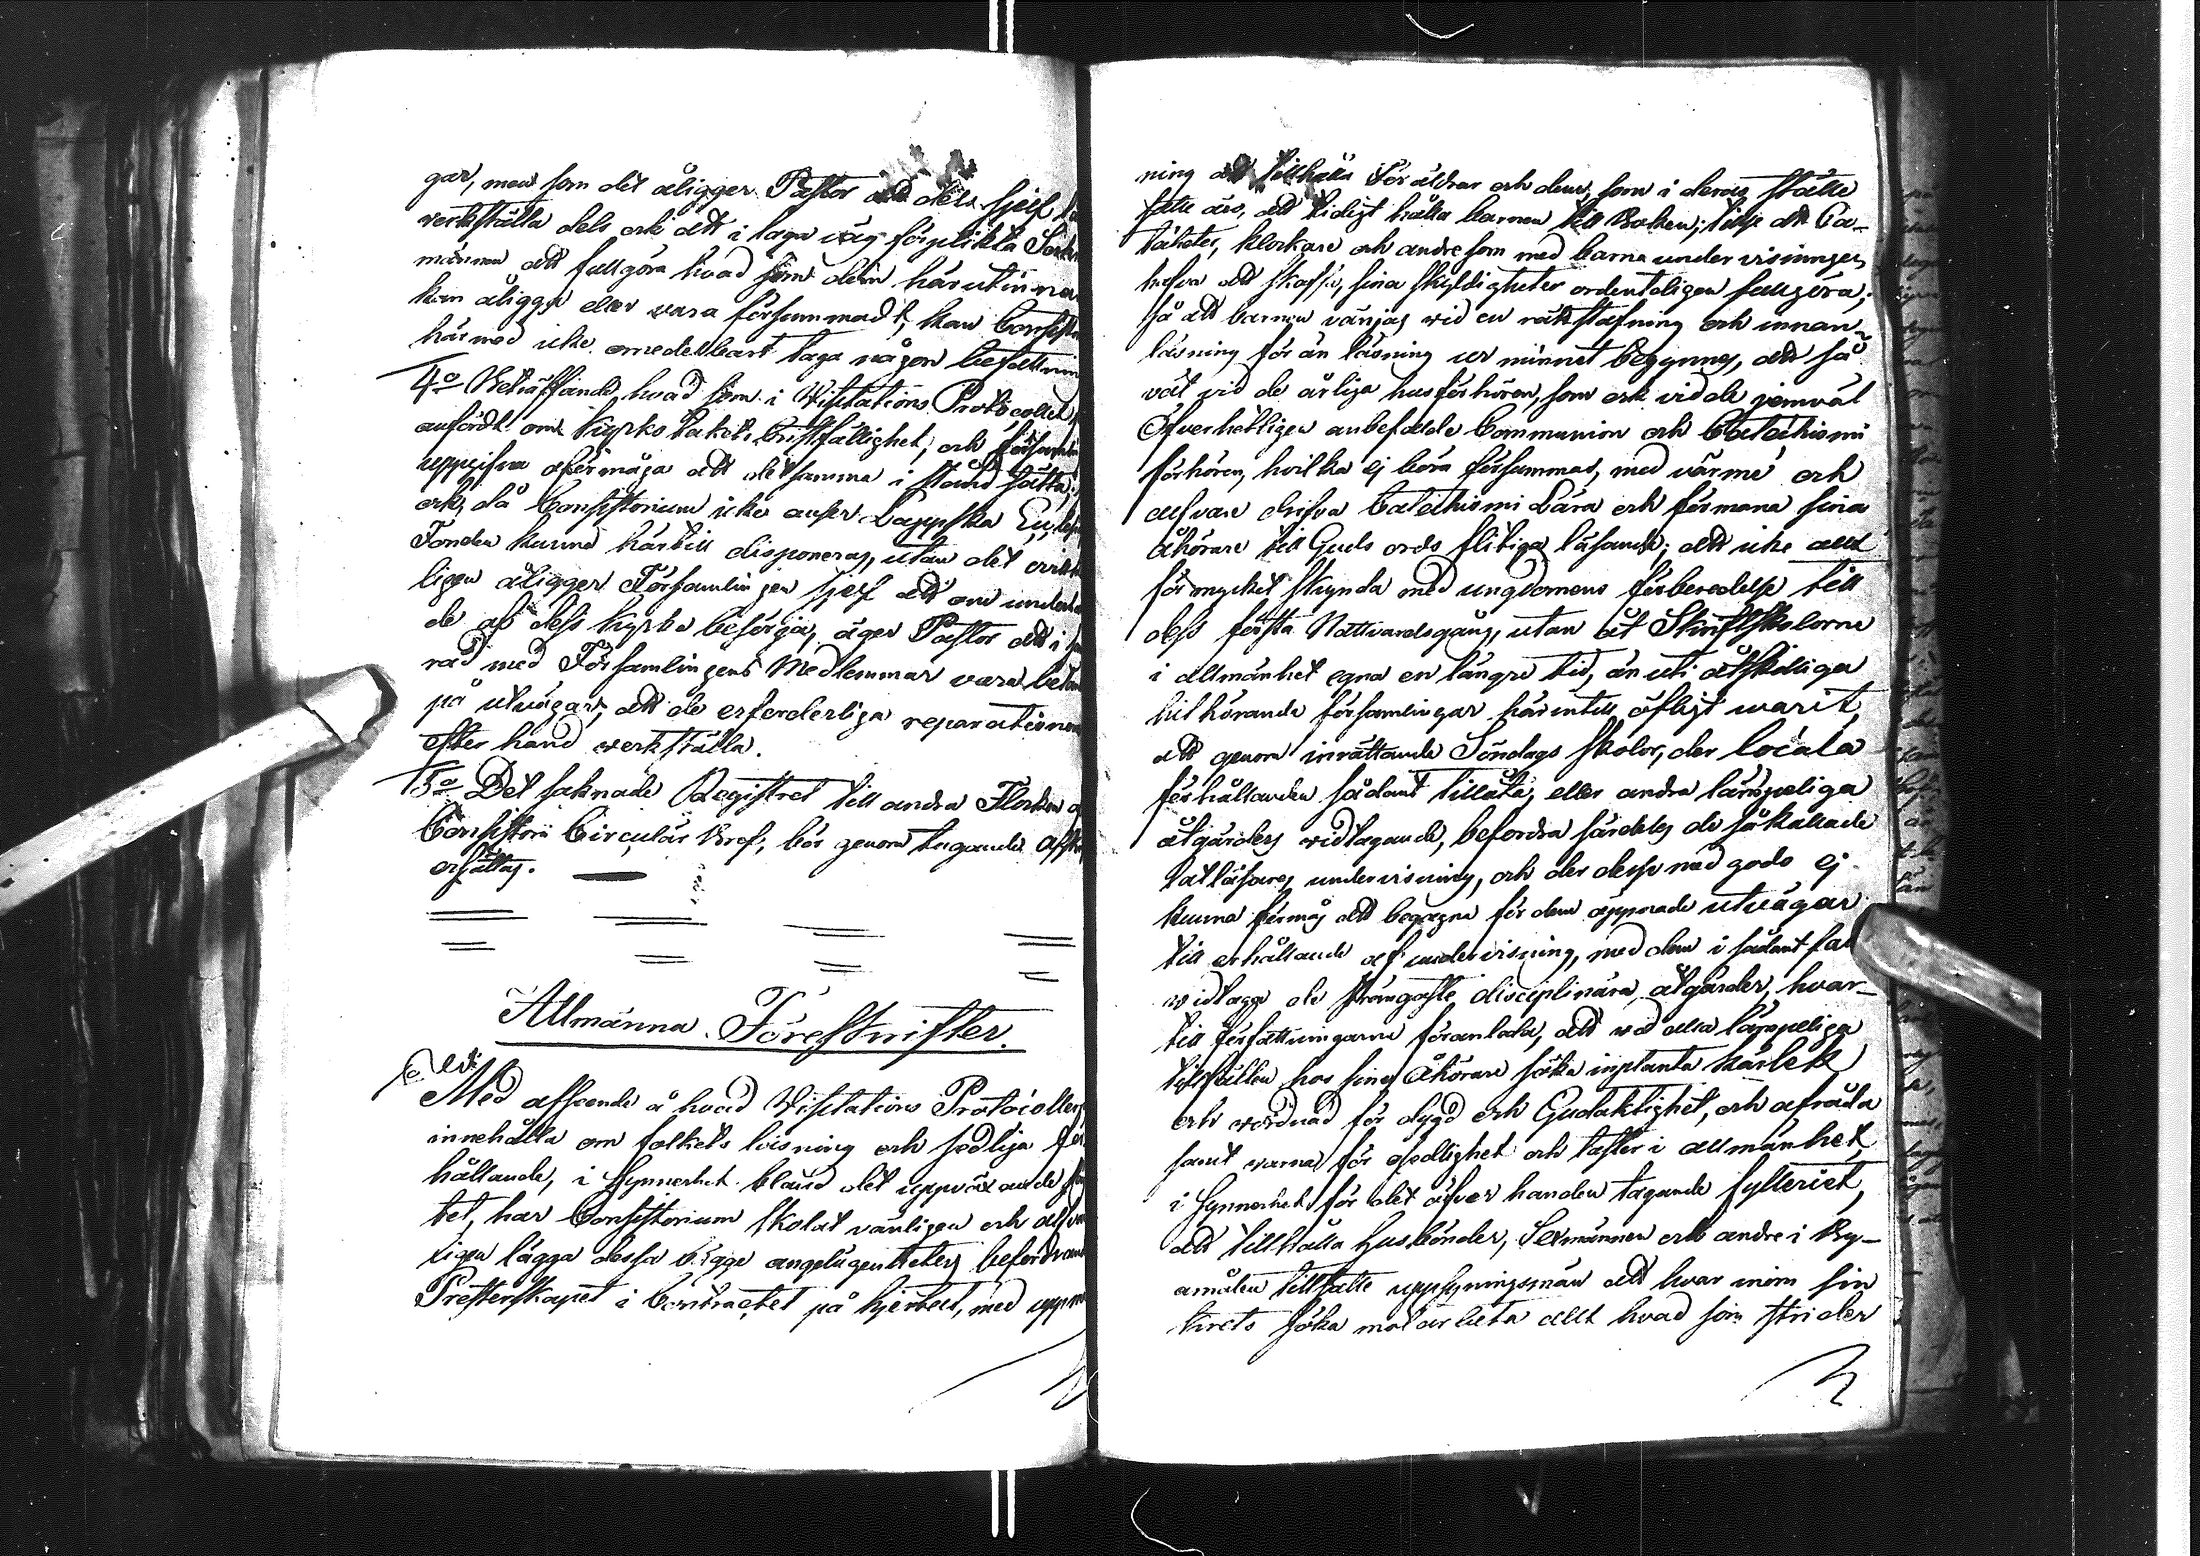 gar, men som det åligger Pastor att dels sjelf
verkställa dels ock att i laga väg förplikta Sockn
männen att fullgöra hvad som dem härutinnan
kan åligga eller vara försummadt, kan Consist
härmed icke omedelbart taga någon befattnin
4o Beträffande hvad som i Visitations Protocollet
anfördt om kyrko takets bristfällighet, och församlin
uppgifna oförmåga att detsamma i stånd sätta,
och, då Consistorium icke anser Lappska Eccles
Fonden kunna härtill disponeras, utan det
ligen åligger Församlingen sjelf att om underh
de af dess kyrka besörja, äger Pastor att i
råd med Församlingens Medlemmar vara betän
på utvägar, att de erforderliga reparationer
efter hand verkställa.
5o Det saknade Registret till andra Flocken
Consistorii Circulär Bref, bör genom tagande Afsk
ersättas.
Allmänna Föreskrifter.
Med afseende å hvad Visitations Protocollen
innehålla om folkets läsning och sedliga för
hållande, i synnerhet bland det uppväxande
tet, har Consistorium skolat vänligen och allvar
ligen lägga dessa bägge angelägenheters befordran
Presterskapet i Contractet på hjertat, med uppm
ning att tillhålla Föräldrar och dem, som i deras ställe
satte äro, att tidigt hålla barnen till Boken; tillse att Ca-
techeter, klockare och andre som med barna undervisningen
hafva att skaffa, sina skyldigheter ordenteligen fullgöra,
så att barnen vänjas vid en rätt stafning och innan-
läsning för än läsning ur minnet begynnes, att så
väl vid de årliga husförhören, som ock vid de jemväl
Öfverhetligen anbefalde Communion och Catechismi
förhören, hvilka ej böra försummas, med värme och
allvar drifva Catechismi Lära och förmana sina
åhörare till Guds ords flitiga läsande; att icke allt
för mycket skynda med ungdomens förberedelse till
dess första Nattvardsgång, utan åt Skriftskolorne
i allmänhet egna en längre tid, än uti åtskilliga
hithörande församlingar härintill öfligt warit,
att genom inrättande Söndags skolor, der locala
förhållanden sådant tillåta, eller andra lämpeliga
åtgärders widtagande, befordra särdeles de såkallade
läsares undervisning, och der desse med godo ej
kunna förmås att begagna för dem öppnade utvägar
till erhållande af undervisning, med dem i sådant fall
widtaga de strängaste disciplinära åtgärder, hvar-
till författningarna föranleda, att vid alla lämpeliga
tillfällen hos sines åhörare söka inplanta kärlek
och wördnad för dygd och Gudaktighet, och afråda
samt warna för osedlighet och laster i allmänhet,
i synnerhet för det öfver handen tagande fylleriet,
att tillhålla husbönder, Sexmännen och andre i By-
amålen tillsatte uppsyningsmän att hvar inom sin
krets söka motarbeta allt hvad som strider